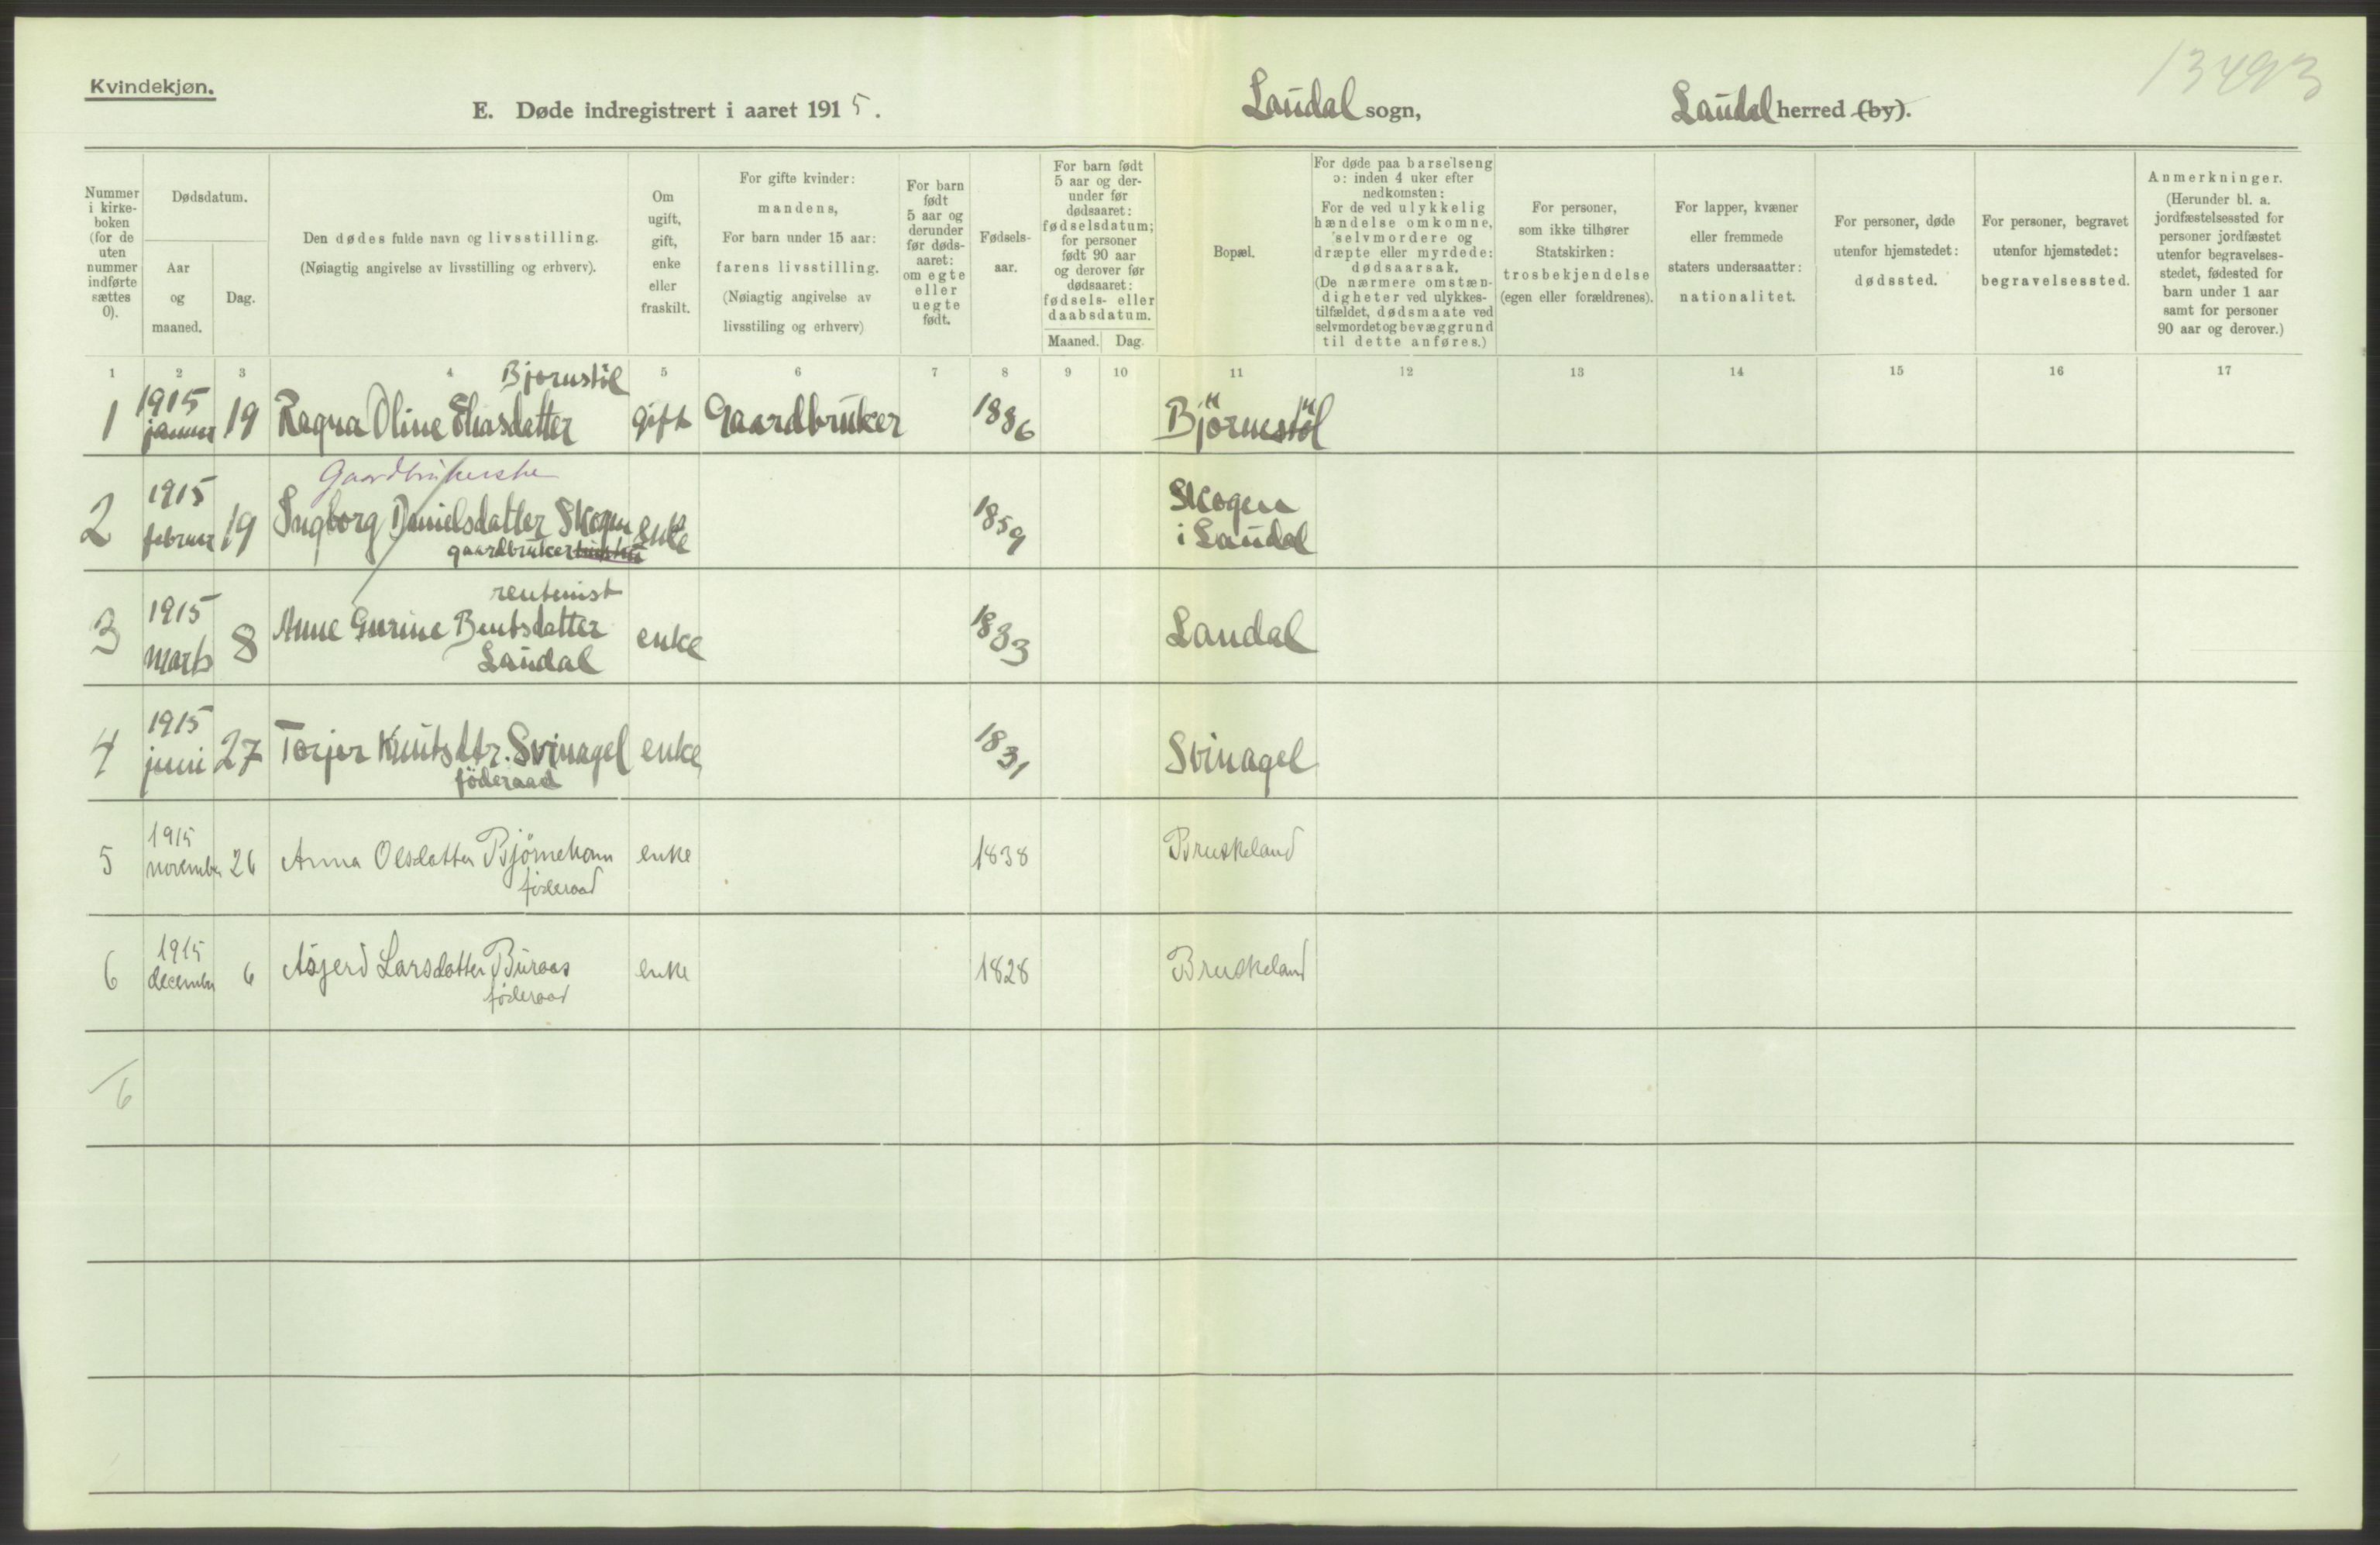 Kvindekjøn.
13493
E. Døde indregistrert i aaret 1915.
Laudal sogn,
Laudal herred (by).
Nummer i kirke-boken (for de uten nummer indførte sættes 0).
Dødsdatum.
Aar og maaned.
Dag.
Den dødes fulde navn og livsstilling.
(Nøiagtig angivelse av livsstilling og erhverv).
Om ugift, gift, enke eller fraskilt.
For gifte kvinder: mandens,
For barn under 15 aar: farens livsstilling.
(Nøiagtig angivelse av livsstiling og erhverv)
For barn født 5 aar og derunder før døds-aaret: om egte eller uegte født.
Fødsels-aar.
For barn født 5 aar og der-under før dødsaaret: fødselsdatum; for personer født 90 aar og derover før dødsaaret: fødsels- eller daabsdatum.
Maaned. Dag.
Bopæl.
For døde paa barselseng ɔ: inden 4 uker efter nedkomsten:
For de ved ulykkelig hændelse omkomne, selvmordere og dræpte eller myrdede: dødsaarsak.
(De nærmere omstæn-digheter ved ulykkes-tilfældet, dødsmaate ved selvmordet og bevæggrund til dette anføres.)
For personer, som ikke tilhører Statskirken: trosbekjendelse (egen eller forældrenes).
For lapper, kvæner eller fremmede staters undersaatter: nationalitet.
For personer, døde utenfor hjemstedet: dødssted.
For personer, begravet utenfor hjemstedet: begravelsessted.
Anmerkninger.
(Herunder bl. a. jordfæstelsessted for personer jordfæstet utenfor begravelses-stedet, fødested for barn under 1 aar samt for personer 90 aar og derover.)
1 2 3 4 5 6 7 8 9 10 11 12 13 14 15 16 17
Bjørnstøl
1 1915 januar 19 Ragna Oline Eliasdatter gift Gaardbruker 1886 Björnestöl
Gaardbrukerske
2 1915 februar 19 Ingborg Danielsdatter Skogen enke 1859 Skogen i Laudal
gaardbruker
rentenist
3 1915 marts 8 Anne Gurine Bentsdatter enke 1833 Laudal
Laudal
4 1915 juni 27 Torjer Knutsdtr. Svinagel enke 1831 Svinagel
föderaad
5 1915 november 26 Anna Olsdatter Bjørneham enke 1838 Bruskeland
føderaad
6 1915 december 6 Asjerd Larsdatter Buraas enke 1828 Bruskeland
føderaad
6